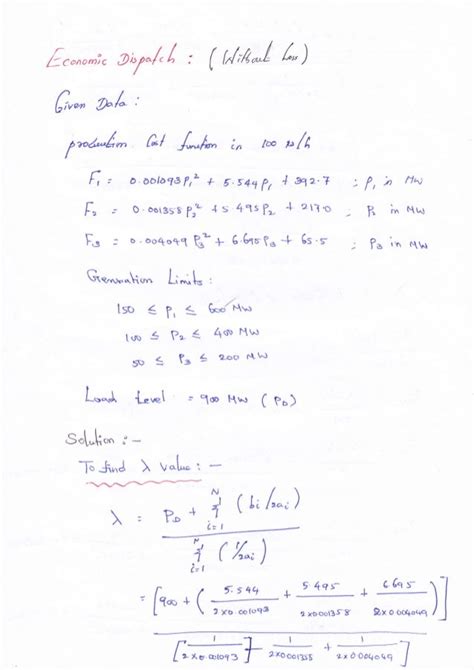 Economic Dispatch : (Without Loss)
Given Data :
production Cost function in 100 Rs/h
F₁ = 0.001093P₁² + 5.544P₁ + 392.7 ; P₁ in MW
F₂ = 0.001358P₂² + 5.495P₂ + 2170 ; P₂ in MW
F₃ = 0.004049P₃² + 6.695P₃ + 65.5 ; P₃ in MW
Generation Limits :
150 ≤ P₁ ≤ 600 MW
100 ≤ P₂ ≤ 400 MW
50 ≤ P₃ ≤ 200 MW
Load Level = 900 MW (P_D)
Solution : -
To find λ value : -
λ = P_D + Σ_{i=1}^{N} (bi/2ai)
Σ_{i=1}^{N} (1/2ai)
= [900 + (5.544/2x0.001093 + 5.495/2x0.001358 + 6.695/2x0.004049)]
[1/2x0.001093] + 1/2x0.001358 + 1/2x0.004049]